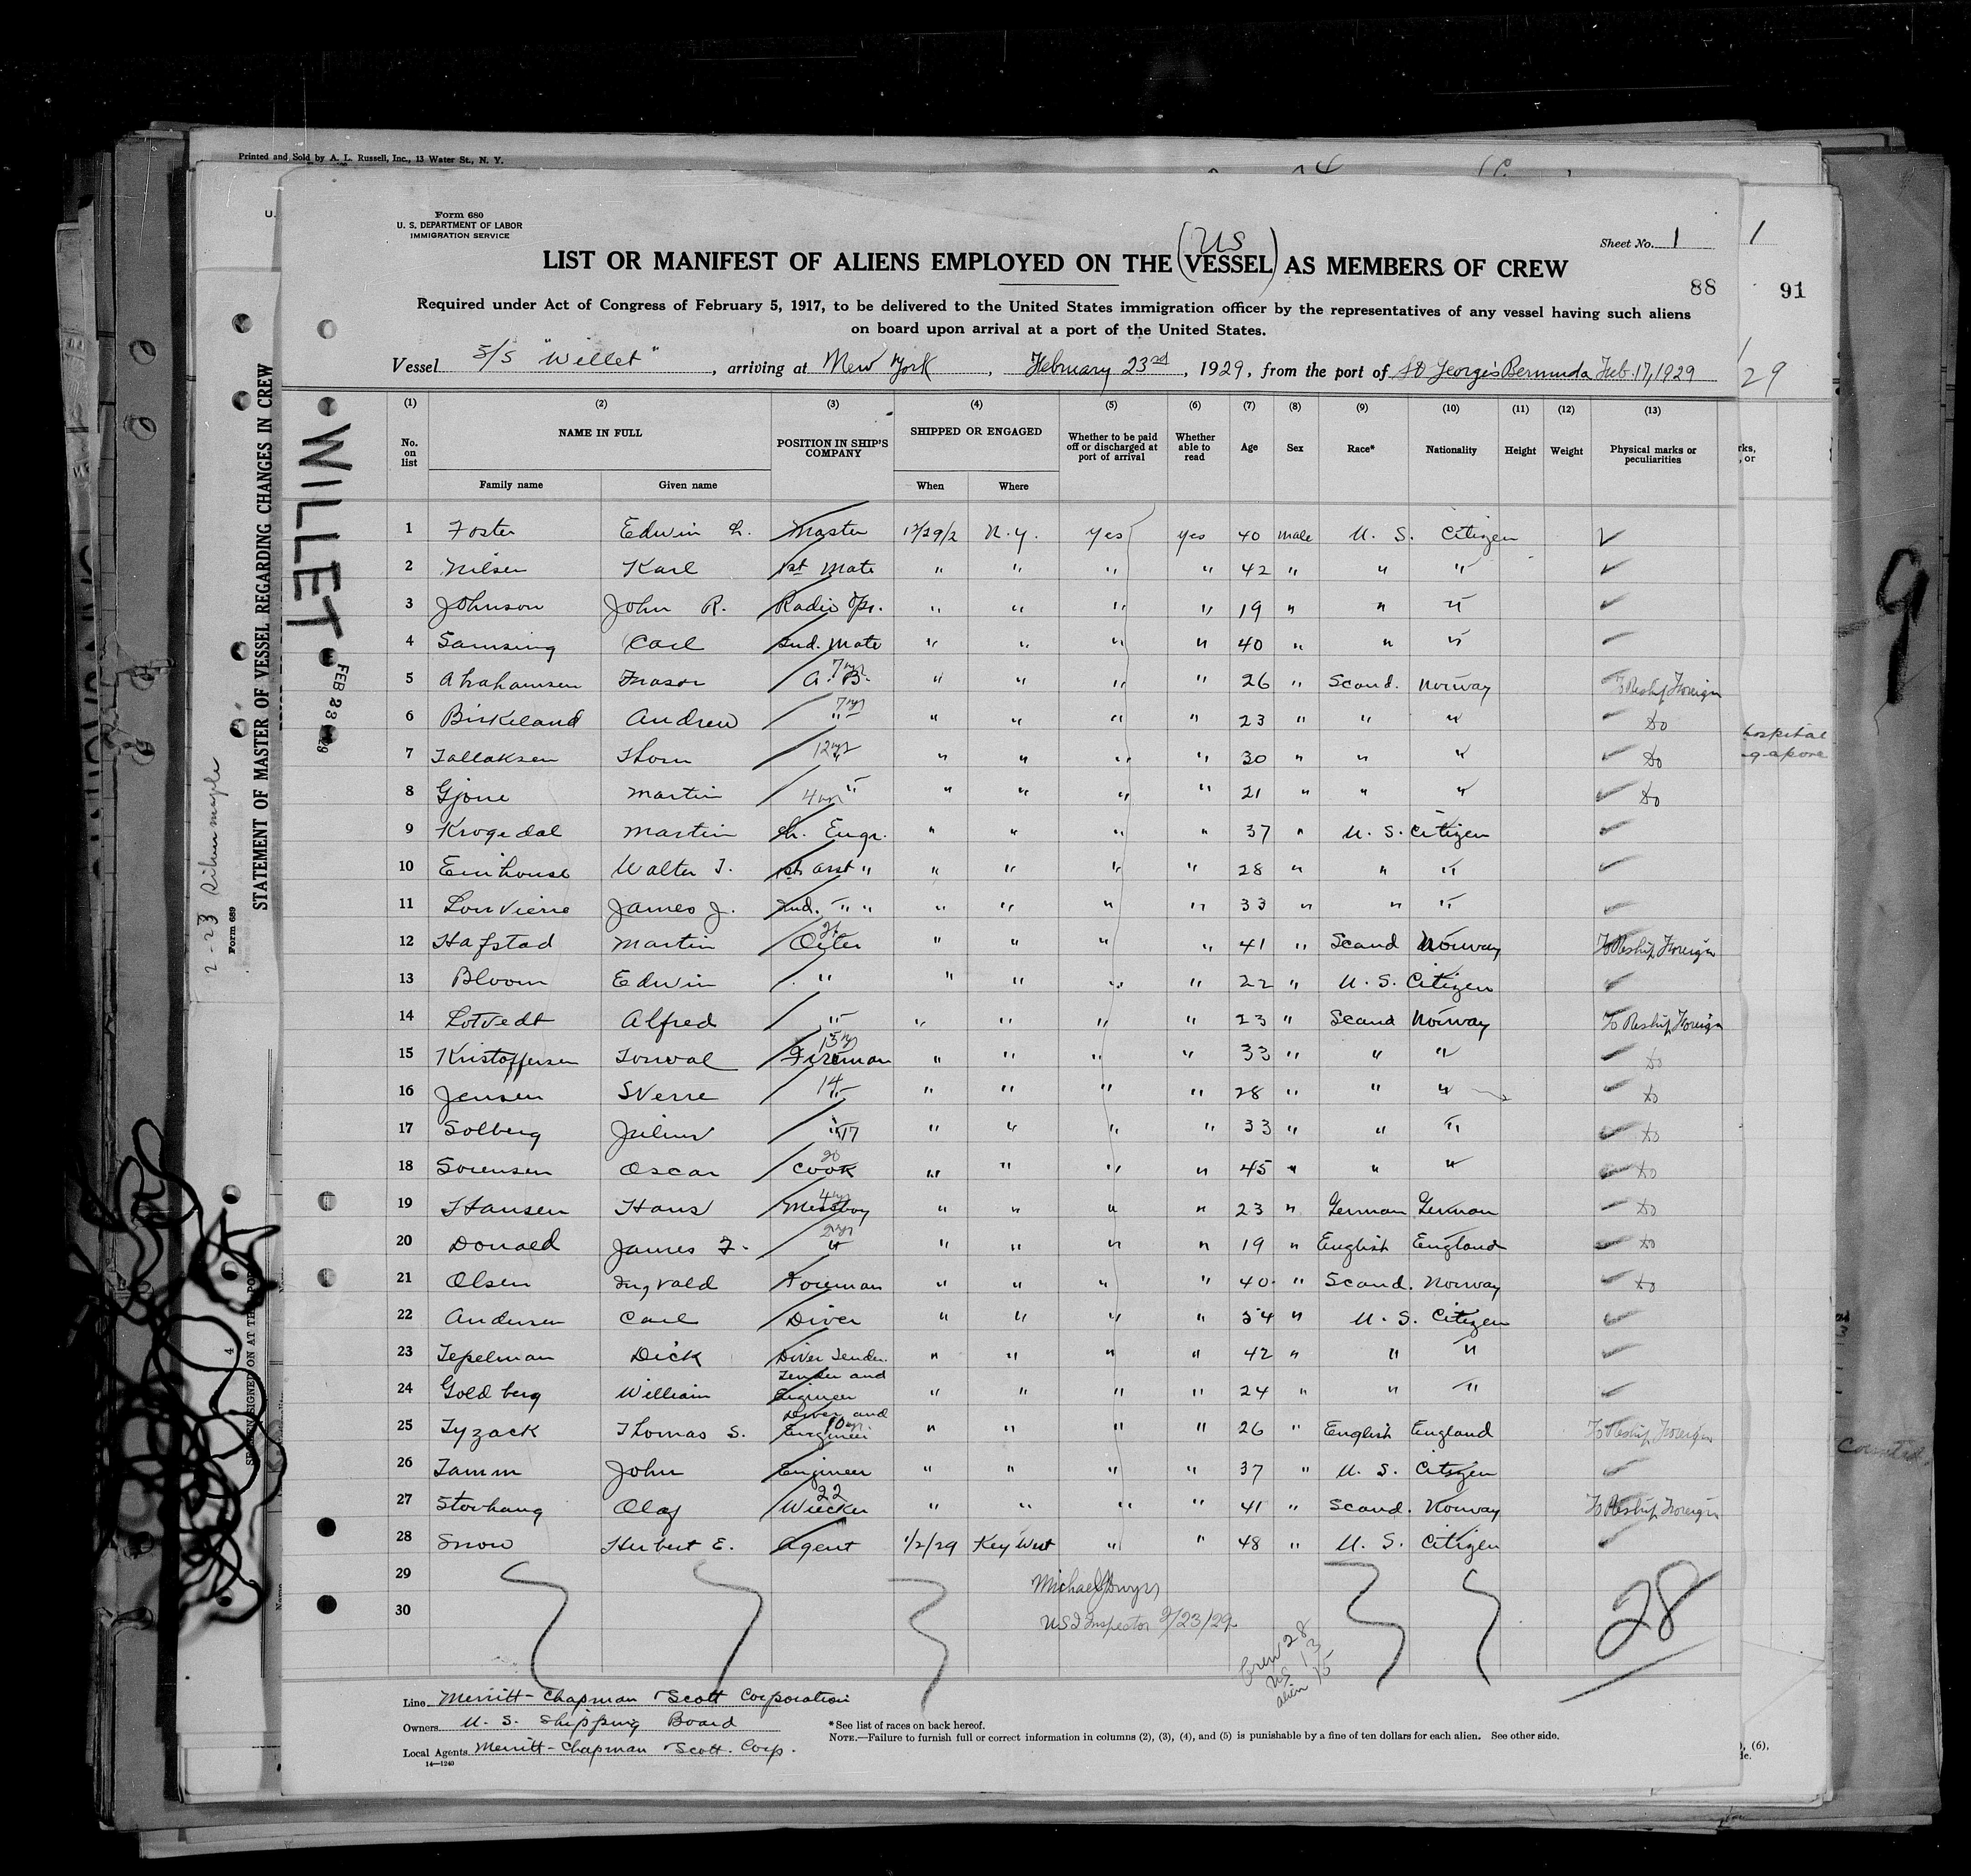 Printed and Sold by A. L. Russell, Inc., 13 Water St., N. Y.
Form 680
U. S. DEPARTMENT OF LABOR
IMMIGRATION SERVICE
Sheet No. 1
1
US
LIST OR MANIFEST OF ALIENS EMPLOYED ON THE (VESSEL) AS MEMBERS OF CREW
88
91
Required under Act of Congress of February 5, 1917, to be delivered to the United States immigration officer by the representatives of any vessel having such aliens
on board upon arrival at a port of the United States.
Vessel S/S "Willet", arriving at New York, February 23rd, 1929, from the port of St Georges Bermuda Feb. 17, 1929
29
(1) (2) (3) (4) (5) (6) (7) (8) (9) (10) (11) (12) (13)
No. on list NAME IN FULL POSITION IN SHIP'S COMPANY SHIPPED OR ENGAGED Whether to be paid off or discharged at port of arrival Whether able to read Age Sex Race* Nationality Height Weight Physical marks or peculiarities
Family name Given name When Where
1 Foster Edwin L. Master 12/29/2 N.Y. Yes yes 40 male U. S. Citizen
2 Nilsen Karl 1st Mate " " " " 42 " " "
3 Johnson John R. Radio Opr. " " " " 19 " " "
4 Samsing Carl 2nd. Mate " " " " 40 " " "
5 Abrahamsen A. B. 7 yr " " " " 26 " Scand. Norway To Reship Foreign
6 Birkeland Andrew " 7 yr " " " " 23 " " " Do
7 Tallaksen Thom " 12 yr " " " " 30 " " " Do
8 Gjone Martin " 4 yr " " " " 21 " " " Do
9 Krogedal Martin Ch. Engr. " " " " 37 " U. S. Citizen
10 Walter T. 1st asst " " " " " 28 " " "
11 James J. 2nd. " " " " " " 33 " " "
12 Hafstad Martin Oiler " " " " 41 " Scand Norway To Reship Foreign
13 Bloom Edwin " " " " " 22 " U. S. Citizen
14 Lotvedt Alfred " " " " " 23 " Scand Norway To Reship Foreign
15 Kristoffersen Torwal Fireman 15 yr " " " " 33 " " " Do
16 Jensen Sverre " 14 " " " " 28 " " " Do
17 Solberg Julius " 17 " " " " 33 " " " Do
18 Sorensen Oscar Cook 20 " " " " 45 " " " Do
19 Hansen Hans Messboy 4 yr " " " " 23 " German German Do
20 Donald James F. " 2 yr " " " " 19 " English England Do
21 Olsen Ingvald Foreman " " " " 40 " Scand. Norway Do
22 Andersen Carl Diver " " " " 54 " U. S. Citizen
23 Tepelman Dick Diver Tender. " " " " 42 " " "
24 Goldberg William Tender and Engineer " " " " 24 " " "
25 Tyzack Thomas S. Diver and Engineer 10 yr. " " " " 26 " English England To Reship Foreign
26 Tamm John Engineer " " " " 37 " U. S. Citizen
27 Storhaug Olaf 22 " " " " 41 " Scand. Norway To Reship Foreign
28 Snow Herbert E. Agent 1/2/29 Key West " " 48 " U. S. Citizen
29
30
Michael J Dwyer
USI Inspector 2/23/29
Crew 28
US 13
alien 15
28
Line Merritt-Chapman & Scott Corporation
Owners U. S. Shipping Board
Local Agents Merritt-Chapman & Scott. Corp.
14—1240
*See list of races on back hereof.
NOTE.—Failure to furnish full or correct information in columns (2), (3), (4), and (5) is punishable by a fine of ten dollars for each alien. See other side.
WILLET
FEB 23 1929
STATEMENT OF MASTER OF VESSEL REGARDING CHANGES IN CREW
Form 689
hospital